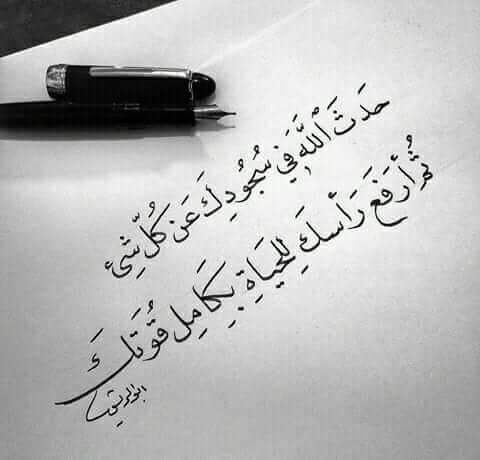 حَدِّثَ ٱللَّهَ فِي سُجُودِكَ عَنْ كُلِّ شَيْءٍ
ثُمَّ أرفَعَ رَأسَكَ لِلحَيَاةِ بِكَامِلِ قُوَّتِكَ